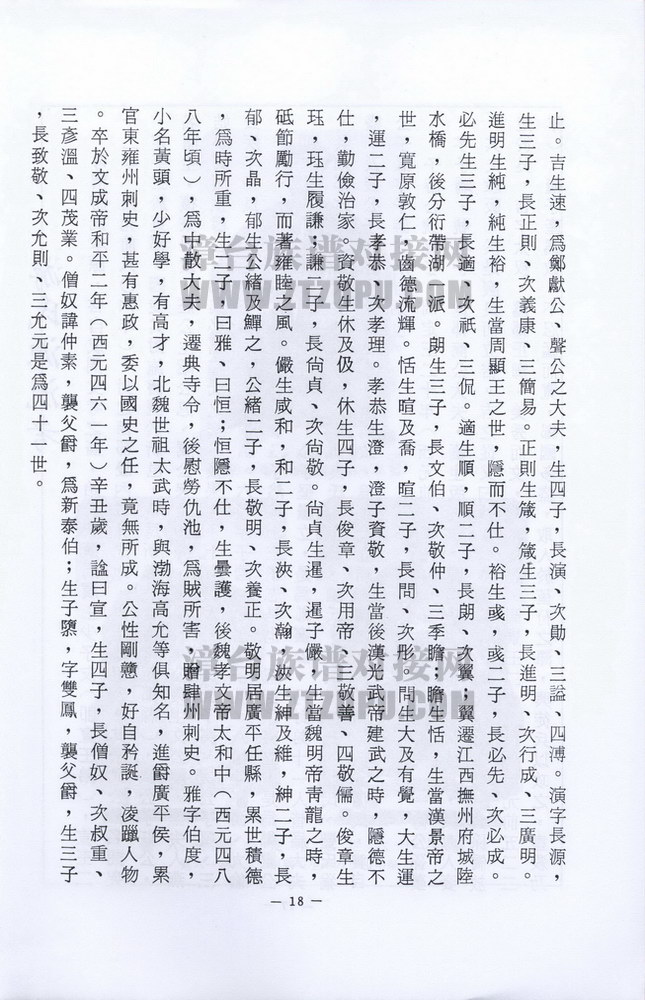 止。吉生速，爲鄭獻公、聲公之大夫，生四子，長演、次勛、三謚、四溥。演字長源，
生三子，長正則、次義康、三簡易。正則生箴，箴生三子，長進明、次行成、三廣明。
進明生純，純生裕，生當周顯王之世，隱而不仕。裕生彧，彧二子，長必先、次必成。
必先生三子，長適、次祇、三侃。適生順，順二子，長朗、次翼；翼遷江西撫州府城陸
水橋，後分衍帶湖一派。朗生三子，長文伯、次敬仲、三季瞻；瞻生恬，生當漢景帝之
世，寬原敦仁，齒德流輝。恬生暄及喬，暄二子，長問、次彤。問生大及有覺，大生運
，運二子，長孝恭、次孝理。孝恭生澄，澄子資敬，生當後漢光武帝建武之時，隱德不
仕，勤儉治家。資敬生休及伋，休生四子，長俊章、次用帝、三敬善、四敬儒。俊章生
珏，珏生履謙；謙二子，長尙貞、次尙敬。尙貞生暹，暹子儼，生當魏明帝青龍之時，
砥節勵行，而著雍陸之風。儼生咸和，和二子，長浹、次瀚，浹生紳及維，紳二子，長
郁、次晶，郁生公緒及鱓之，公緒二子，長敬明、次養正。敬明居廣平任縣，累世積德
，爲時所重，生二子，曰雅、曰恒；恒隱不仕，生曇護，後魏孝文帝太和中（西元四八
八年頃），爲中散大夫，遷典寺令，後慰勞仇池，爲賊所害，贈肆州刺史。雅字伯度，
小名黃頭，少好學，有高才，北魏世祖太武時，與渤海高允等俱知名，進爵廣平侯，累
官東雍州刺史，甚有惠政，委以國史之任，竟無所成。公性剛戇，好自矜誕，凌躐人物
。卒於文成帝和平二年（西元四六一年）辛丑歲，諡曰宣，生四子，長僧奴、次叔重、
三彥溫、四茂業。僧奴諱仲素，襲父爵，爲新泰伯；生子隳，字雙鳳，襲父爵，生三子
，長致敬、次允則、三允元是爲四十一世。
— 18 —
漳台族谱对接网
WWW.ZTZUPU.COM
漳台族谱对接网
WWW.ZTZUPU.COM